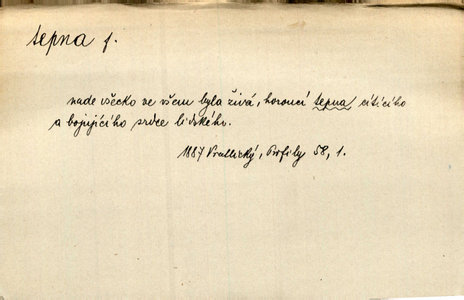 tepna f.
nade všecko ve všem byla živá, horoucí tepna cítícího
a bojujícího srdce lidského.
1887 Vrchlický, Profily 58, 1.